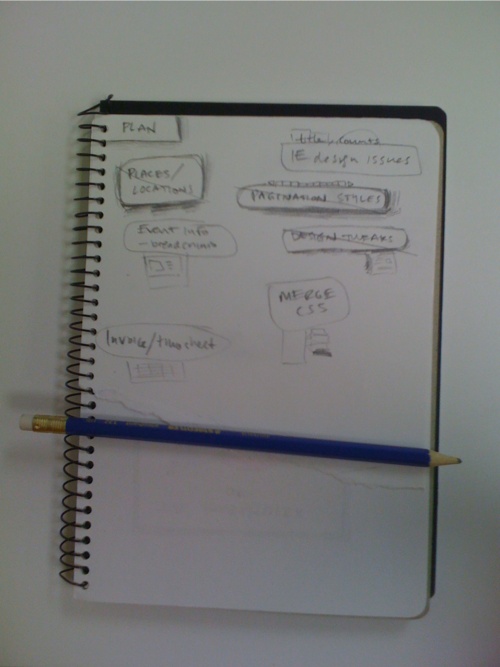 PLAN
PLACES/
LOCATIONS
Event Info
- breadcrumb
Invoice/timesheet
IE design issues
PAGINATION STYLES
DESIGN TWEAKS
MERGE
CSS